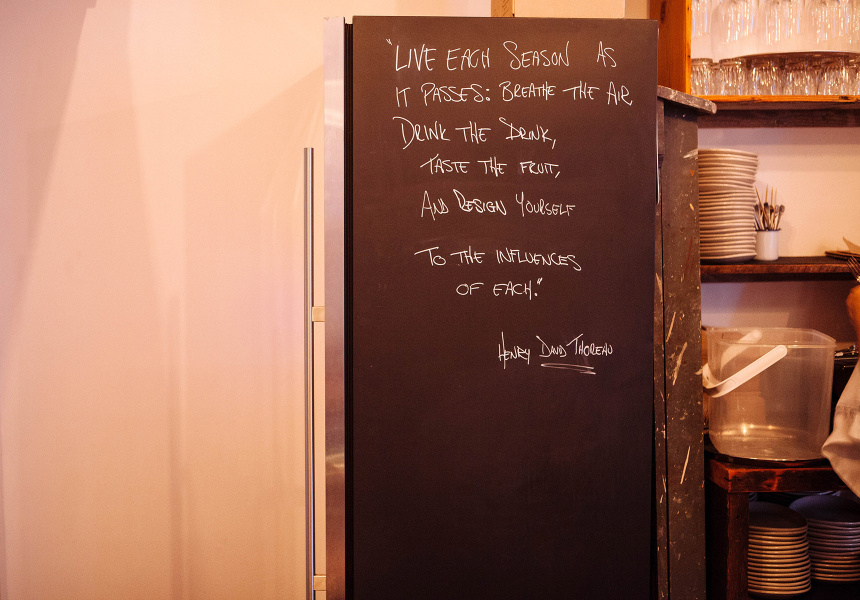 "LIVE EACH SEASON AS
IT PASSES: BREATHE THE AIR
DRINK THE DRINK,
TASTE THE FRUIT,
AND RESIGN YOURSELF
TO THE INFLUENCES
OF EACH."
HENRY DAVID THOREAU